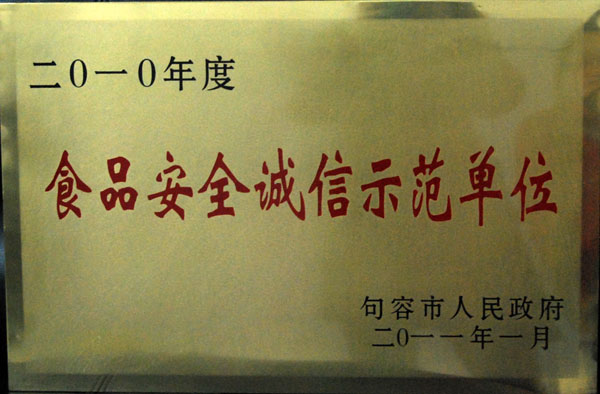 二〇一〇年度
食品安全诚信示范单位
句容市人民政府
二〇一一年一月